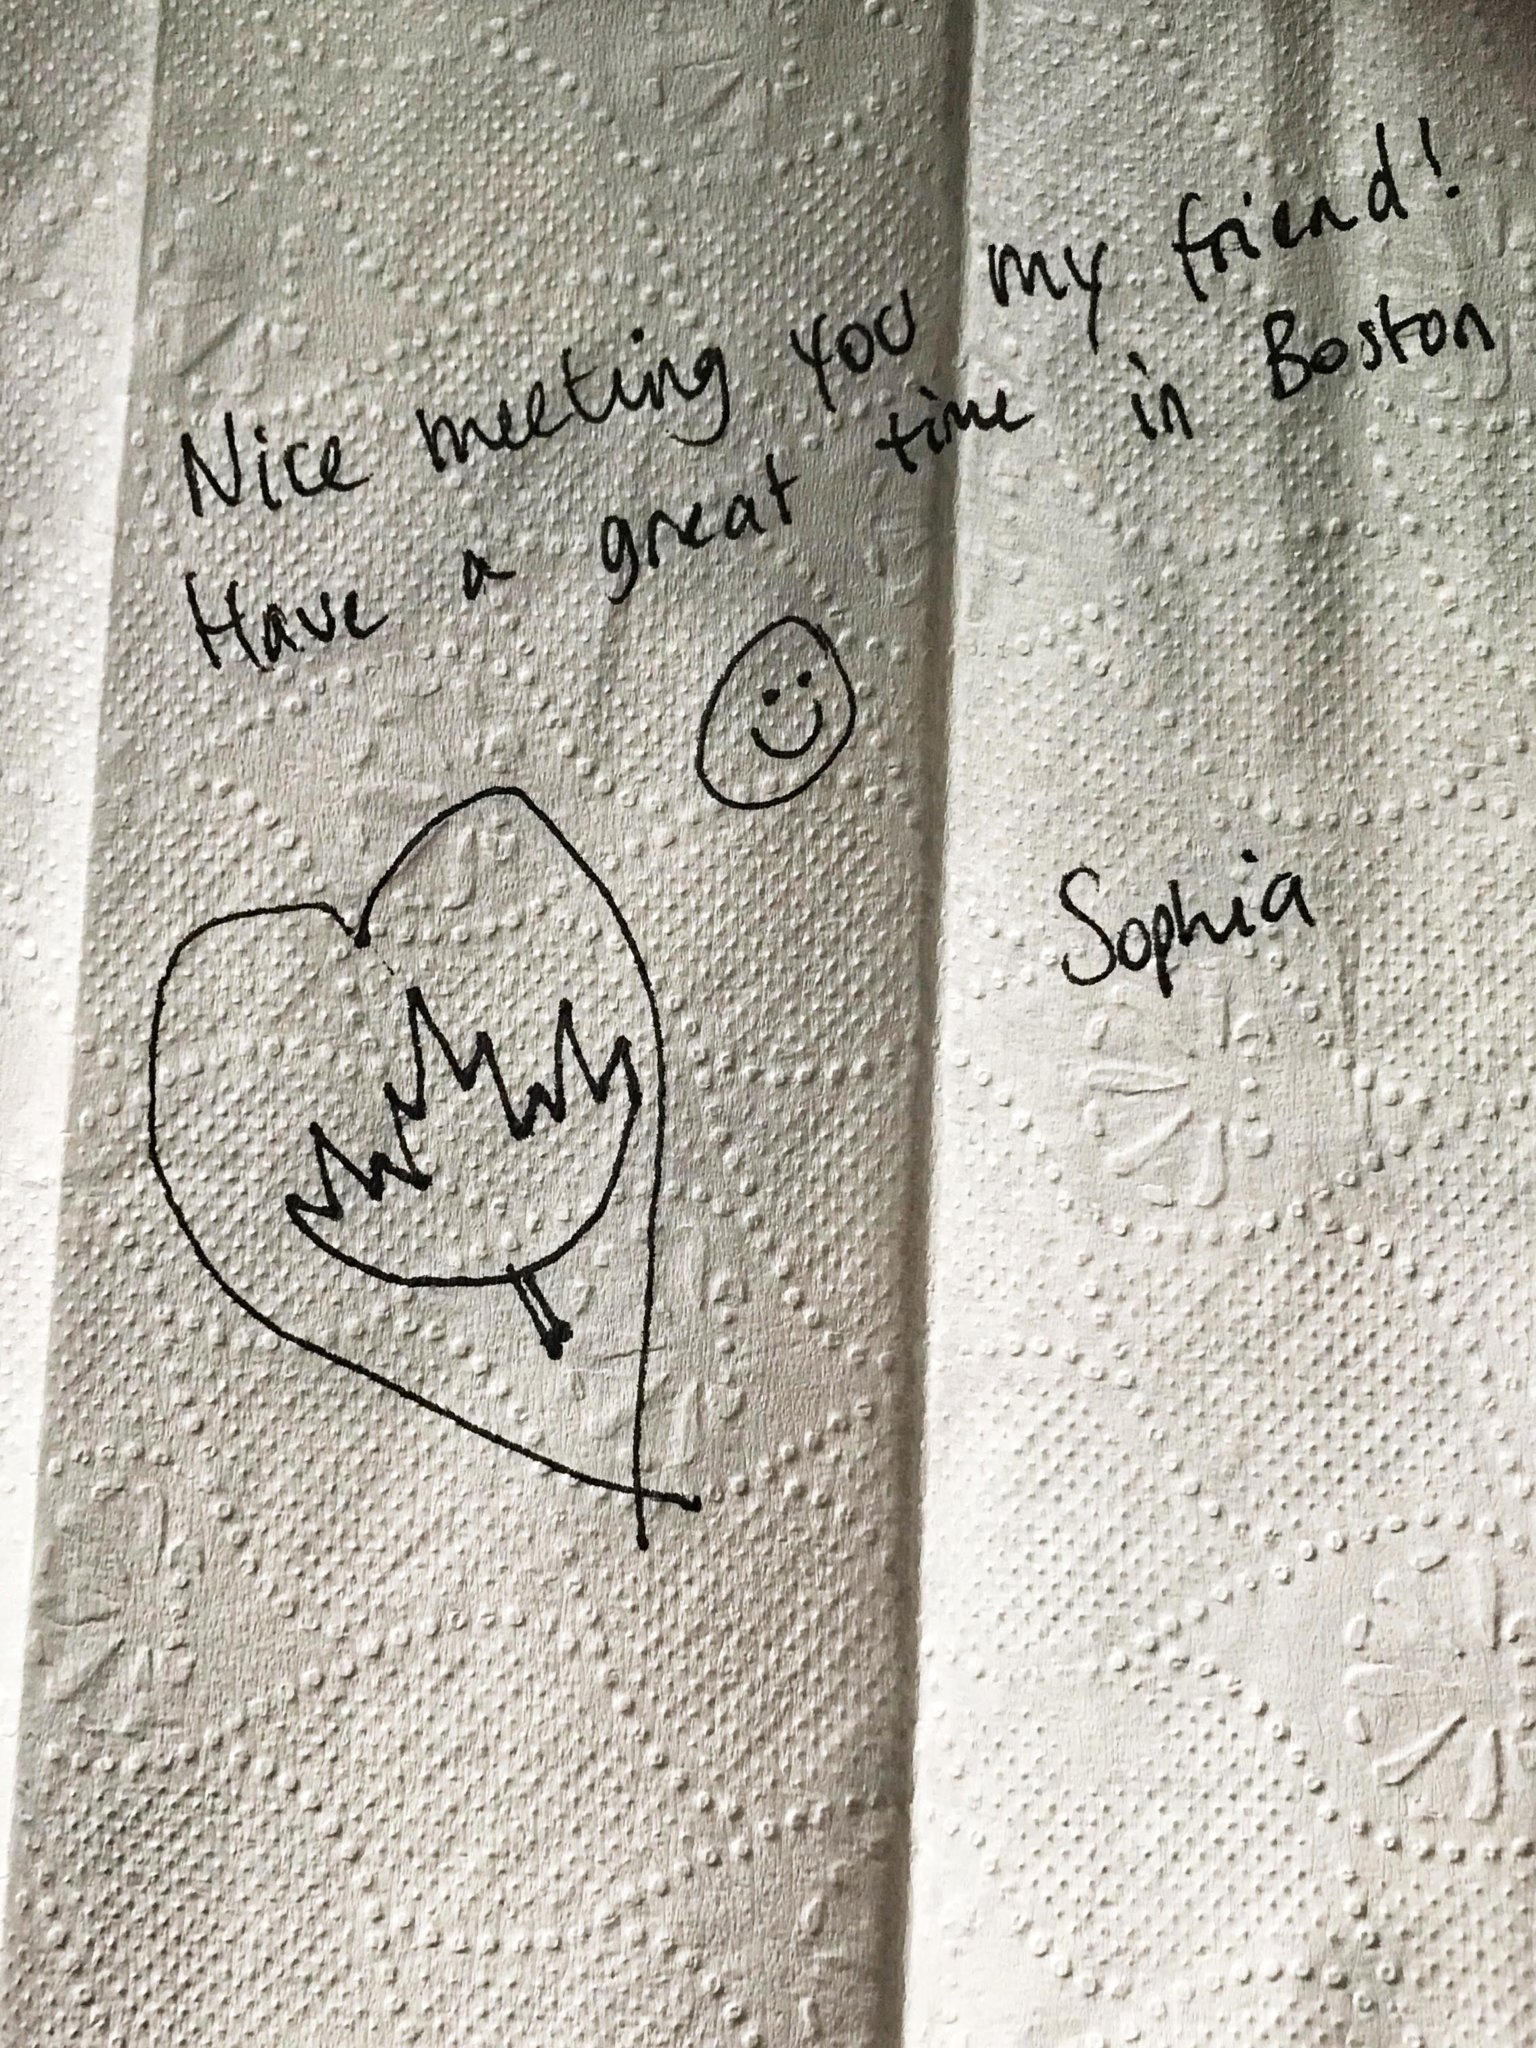 Nice meeting you my friend!
Have a great time in Boston
Sophia